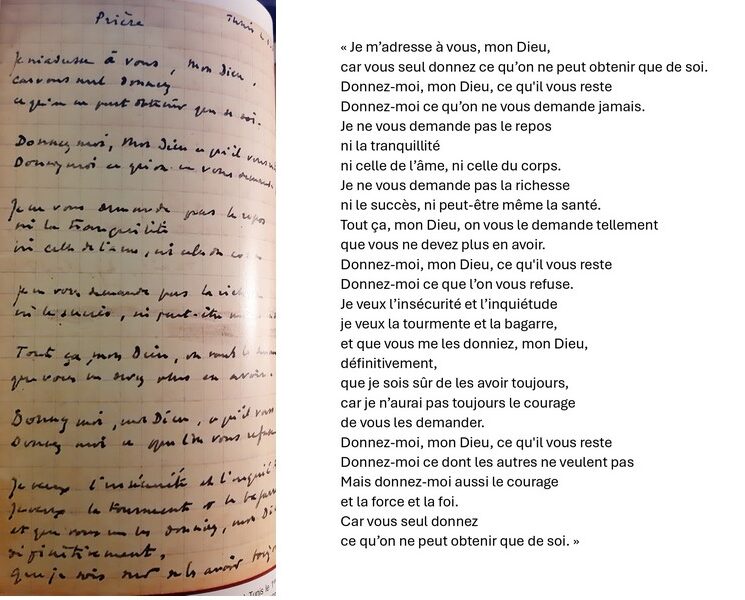 Prière
Tunis
Je m'adresse à vous, mon Dieu,
car vous seul donnez
ce qu'on ne peut obtenir que de soi.
Donnez moi, mon Dieu ce qu'il vous
Donnez moi ce qu'on ne vous
Je ne vous demande pas le repos
ni la tranquillité
ni celle de l'âme, ni celle du
Je ne vous demande pas la
ni le succès, ni peut-être
Tout ça, mon Dieu, on vous le
que vous ne devez plus en avoir.
Donnez moi, mon Dieu, ce qu'il vous
Donnez moi ce que l'on vous
Je veux l'insécurité et
Je veux la tourmente et la
et que vous me les donniez, mon
définitivement,
que je sois sûr de les avoir
« Je m'adresse à vous, mon Dieu,
car vous seul donnez ce qu'on ne peut obtenir que de soi.
Donnez-moi, mon Dieu, ce qu'il vous reste
Donnez-moi ce qu'on ne vous demande jamais.
Je ne vous demande pas le repos
ni la tranquillité
ni celle de l'âme, ni celle du corps.
Je ne vous demande pas la richesse
ni le succès, ni peut-être même la santé.
Tout ça, mon Dieu, on vous le demande tellement
que vous ne devez plus en avoir.
Donnez-moi, mon Dieu, ce qu'il vous reste
Donnez-moi ce que l'on vous refuse.
Je veux l'insécurité et l'inquiétude
je veux la tourmente et la bagarre,
et que vous me les donniez, mon Dieu,
définitivement,
que je sois sûr de les avoir toujours,
car je n'aurai pas toujours le courage
de vous les demander.
Donnez-moi, mon Dieu, ce qu'il vous reste
Donnez-moi ce dont les autres ne veulent pas
Mais donnez-moi aussi le courage
et la force et la foi.
Car vous seul donnez
ce qu'on ne peut obtenir que de soi. »